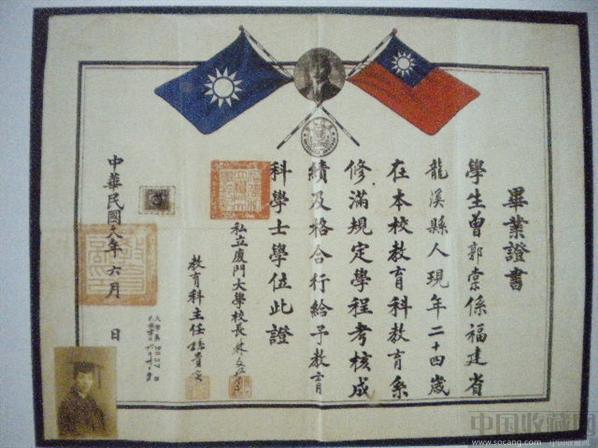 畢業證書
學生曾郭棠係福建省
龍溪縣人現年二十四歲
在本校教育科教育系
修滿規定學程考核成
績及格合行給予教育
科學士學位此證
私立廈門大學校長林文慶
教育科主任孫貴定
中華民國
年六月 日
中国收藏网
www.socang.com